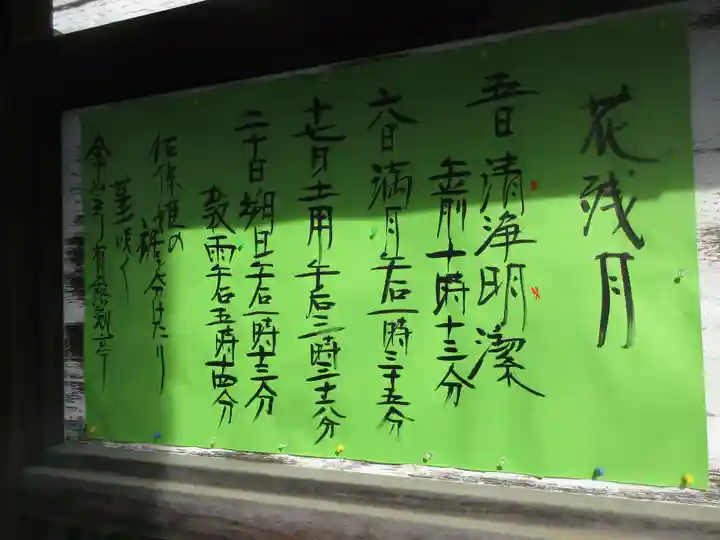 花残月
五日 清浄明潔
午前十時十三分
六日 満月 午后一時三十五分
十七日 土用 午后二時二十八分
二十日 朔旦 午后一時十三分
穀雨 午后五時十四分
佐保姫の
分けたり
菫咲く